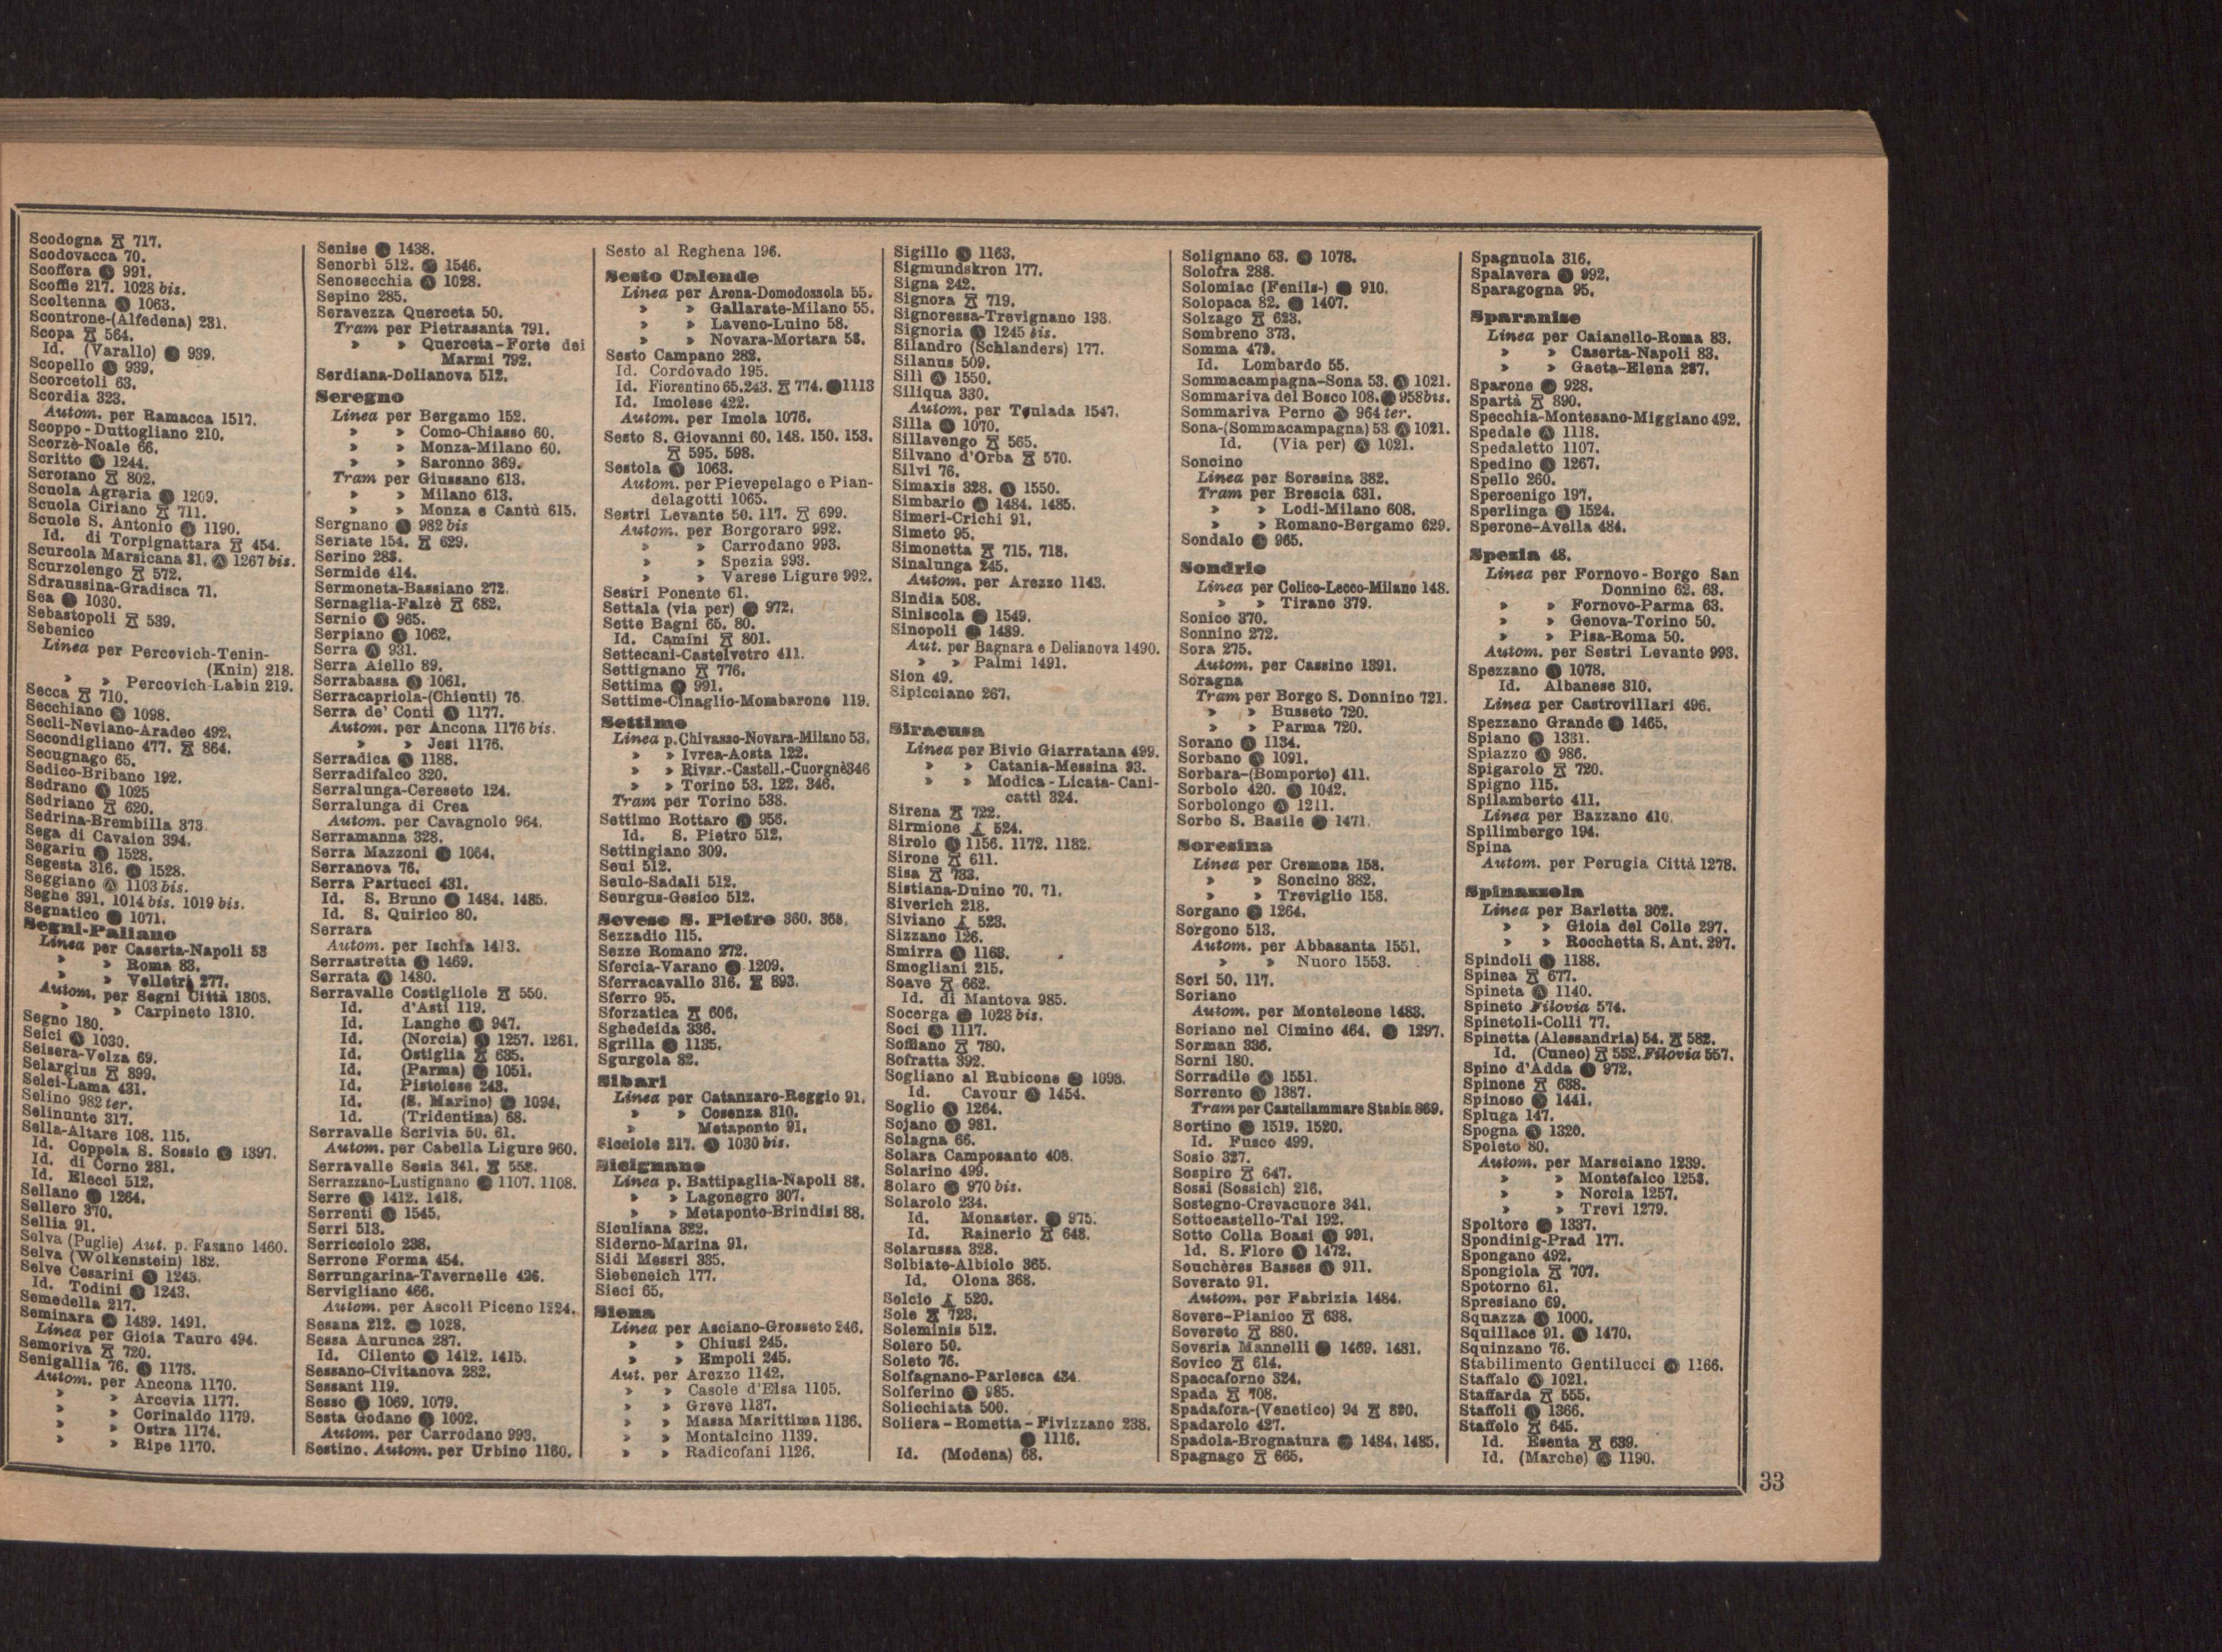 Scodogna 717.
Scodovacca 70.
Scoffera 991.
Scoffle 217. 1028 bis.
Scoltenna 1063.
Scontrone-(Alfedena) 281.
Scopa 564.
Id. (Varallo) 939.
Scopello 939.
Scorcetoli 63.
Scordia 323.
Autom. per Ramacca 1517.
Scoppo-Duttogliano 210.
Scorzè-Noale 66.
Scritto 1244.
Scrofano 802.
Scuola Agraria 1209.
Scuola Ciriano 711.
Scuole S. Antonio 1190.
Id. di Torpignattara 454.
Scurcola Marsicana 81. 1267 bis.
Scurzolengo 572.
Sdraussina-Gradisca 71.
Sea 1030.
Sebastopoli 539.
Sebenico
Linea per Percovich-Tenin-
(Knin) 218.
» » Percovich-Labin 219.
Secca 710.
Secchiano 1098.
Secli-Neviano-Aradeo 492.
Secondigliano 477. 864.
Secugnago 65.
Sedico-Bribano 192.
Sedrano 1025
Sedriano 620.
Sedrina-Brembilla 373.
Sega di Cavaion 394.
Segariu 1528.
Segesta 316. 1528.
Seggiano 1103 bis.
Seghe 391. 1014 bis. 1019 bis.
Segnatico 1071.
Segni-Paliano
Linea per Caserta-Napoli 83
» » Roma 83.
» » Velletri 277.
Autom. per Segni Città 1303.
» » Carpineto 1310.
Segno 180.
Seici 1030.
Seisera-Volza 69.
Selargius 899.
Selci-Lama 431.
Selino 982 ter.
Selinunte 317.
Sella-Altare 108. 115.
Id. Coppola S. Sossio 1397.
Id. di Corno 281.
Id. Elecci 512.
Sellano 1264.
Sellero 370.
Sellia 91.
Selva (Puglie) Aut. p. Fasano 1460.
Selva (Wolkenstein) 182.
Selve Cesarini 1243.
Id. Todini 1243.
Semedella 217.
Seminara 1489. 1491.
Linea per Gioia Tauro 494.
Semoriva 720.
Senigallia 76. 1178.
Autom. per Ancona 1170.
» » Arcevia 1177.
» » Corinaldo 1179.
» » Ostra 1174.
» » Ripe 1170.
Senise 1438.
Senorbì 512. 1546.
Senosecchia 1028.
Sepino 285.
Seravezza Querceta 50.
Tram per Pietrasanta 791.
» » Querceta-Forte dei
Marmi 792.
Serdiana-Dolianova 512.
Seregno
Linea per Bergamo 152.
» » Como-Chiasso 60.
» » Monza-Milano 60.
» » Saronno 369.
Tram per Giussano 613.
» » Milano 613.
» » Monza e Cantù 615.
Sergnano 982 bis
Seriate 154. 629.
Serino 288.
Sermide 414.
Sermoneta-Bassiano 272.
Sernaglia-Falzè 682.
Sernio 965.
Serpiano 1062.
Serra 931.
Serra Aiello 89.
Serrabassa 1061.
Serracapriola-(Chieuti) 76.
Serra de' Conti 1177.
Autom. per Ancona 1176 bis.
» » Jesi 1176.
Serradica 1188.
Serradifalco 320.
Serralunga-Cereseto 124.
Serralunga di Crea
Autom. per Cavagnolo 964.
Serramanna 328.
Serra Mazzoni 1064.
Serranova 76.
Serra Partucci 431.
Id. S. Bruno 1484. 1485.
Id. S. Quirico 80.
Serrara
Autom. per Ischia 1413.
Serrastretta 1469.
Serrata 1480.
Serravalle Costigliole 550.
Id. d'Asti 119.
Id. Langhe 947.
Id. (Norcia) 1257. 1261.
Id. Ostiglia 635.
Id. (Parma) 1051.
Id. Pistoiese 243.
Id. (S. Marino) 1094.
Id. (Tridentina) 68.
Serravalle Scrivia 50. 61.
Autom. per Cabella Ligure 960.
Serravalle Sesia 341. 558.
Serrazzano-Lustignano 1107. 1108.
Serre 1412. 1418.
Serrenti 1545.
Serri 513.
Serricciolo 238.
Serrone Forma 454.
Serrungarina-Tavernelle 426.
Servigliano 466.
Autom. per Ascoli Piceno 1224.
Sesana 212. 1028.
Sessa Aurunca 287.
Id. Cilento 1412. 1415.
Sessano-Civitanova 282.
Sessant 119.
Sesso 1069. 1079.
Sesta Godano 1002.
Autom. per Carrodano 993.
Sestino. Autom. per Urbino 1160.
Sesto al Reghena 196.
Sesto Calende
Linea per Arona-Domodossola 55.
» » Gallarate-Milano 55.
» » Laveno-Luino 58.
» » Novara-Mortara 58.
Sesto Campano 282.
Id. Cordovado 195.
Id. Fiorentino 65.243. 774. 1113
Id. Imolese 422.
Autom. per Imola 1076.
Sesto S. Giovanni 60. 148. 150. 153.
595. 598.
Sestola 1063.
Autom. per Pievepelago e Pian-
delagotti 1065.
Sestri Levante 50. 117. 699.
Autom. per Borgoraro 992.
» » Carrodano 993.
» » Spezia 993.
» » Varese Ligure 992.
Sestri Ponente 61.
Settala (via per) 972.
Sette Bagni 65. 80.
Id. Camini 801.
Settecani-Castelvetro 411.
Settignano 776.
Settima 991.
Settime-Cinaglio-Mombarone 119.
Settimo
Linea p. Chivasso-Novara-Milano 53.
» » Ivrea-Aosta 122.
» » Rivar.-Castell.-Cuorgnè 346
» » Torino 53. 122. 346.
Tram per Torino 538.
Settimo Rottaro 956.
Id. S. Pietro 512.
Settingiano 309.
Seui 512.
Seulo-Sadali 512.
Seurgus-Gesico 512.
Seveso S. Pietro 360. 368.
Sezzadio 115.
Sezze Romano 272.
Sfercia-Varano 1209.
Sferracavallo 316. 893.
Sferro 95.
Sforzatica 606.
Sghedeida 336.
Sgrilla 1135.
Sgurgola 82.
Sibari
Linea per Catanzaro-Reggio 91.
» » Cosenza 310.
» Metaponto 91.
Sicciole 217. 1030 bis.
Sicignano
Linea p. Battipaglia-Napoli 88.
» » Lagonegro 307.
» » Metaponto-Brindisi 88.
Siculiana 322.
Siderno-Marina 91.
Sidi Messri 335.
Siebeneich 177.
Sieci 65.
Siena
Linea per Asciano-Grosseto 246.
» » Chiusi 245.
» » Empoli 245.
Aut. per Arezzo 1142.
» » Casole d'Elsa 1105.
» » Greve 1137.
» » Massa Marittima 1136.
» » Montalcino 1139.
» » Radicofani 1126.
Sigillo 1163.
Sigmundskron 177.
Signa 242.
Signora 719.
Signoressa-Trevignano 193.
Signoria 1245 bis.
Silandro (Schlanders) 177.
Silanus 509.
Silì 1550.
Siliqua 330.
Autom. per Teulada 1547.
Silla 1070.
Sillavengo 565.
Silvano d'Orba 570.
Silvi 76.
Simaxis 328. 1550.
Simbario 1484. 1485.
Simeri-Crichi 91.
Simeto 95.
Simonetta 715. 718.
Sinalunga 245.
Autom. per Arezzo 1143.
Sindia 508.
Siniscola 1549.
Sinopoli 1489.
Aut. per Bagnara e Delianova 1490.
» » Palmi 1491.
Sion 49.
Sipicciano 267.
Siracusa
Linea per Bivio Giarratana 499.
» » Catania-Messina 93.
» » Modica-Licata-Cani-
cattì 324.
Sirena 722.
Sirmione 524.
Sirolo 1156. 1172. 1182.
Sirone 611.
Sisa 733.
Sistiana-Duino 70. 71.
Siverich 218.
Siviano 523.
Sizzano 126.
Smirra 1163.
Smogliani 215.
Soave 662.
Id. di Mantova 985.
Socerga 1023 bis.
Soci 1117.
Soffiano 780.
Sofratta 392.
Sogliano al Rubicone 1098.
Id. Cavour 1454.
Soglio 1264.
Sojano 981.
Solagna 66.
Solara Camposanto 408.
Solarino 499.
Solaro 970 bis.
Solarolo 234.
Id. Monaster. 975.
Id. Rainerio 648.
Solarussa 328.
Solbiate-Albiolo 365.
Id. Olona 368.
Solcio 520.
Sole 723.
Soleminis 512.
Solero 50.
Soleto 76.
Solfagnano-Parlesca 434.
Solferino 985.
Solicchiata 500.
Soliera-Rometta-Fivizzano 238.
1116.
Id. (Modena) 68.
Solignano 63. 1078.
Solofra 288.
Solomiac (Fenils-) 910.
Solopaca 82. 1407.
Solzago 623.
Sombreno 373.
Somma 479.
Id. Lombardo 55.
Sommacampagna-Sona 53. 1021.
Sommariva del Bosco 108. 958 bis.
Sommariva Perno 964 ter.
Sona-(Sommacampagna) 53 1021.
Id. (Via per) 1021.
Soncino
Linea per Soresina 382.
Tram per Brescia 631.
» » Lodi-Milano 608.
» » Romano-Bergamo 629.
Sondalo 965.
Sondrio
Linea per Colico-Lecco-Milano 148.
» » Tirano 379.
Sonico 370.
Sonnino 272.
Sora 275.
Autom. per Cassino 1391.
Soragna
Tram per Borgo S. Donnino 721.
» » Busseto 720.
» » Parma 720.
Sorano 1134.
Sorbano 1091.
Sorbara-(Bomporto) 411.
Sorbolo 420. 1042.
Sorbolongo 1211.
Sorbo S. Basile 1471.
Soresina
Linea per Cremona 158.
» » Soncino 382.
» » Treviglio 158.
Sorgano 1264.
Sorgono 513.
Autom. per Abbasanta 1551.
» » Nuoro 1553.
Sori 50. 117.
Soriano
Autom. per Monteleone 1483.
Soriano nel Cimino 464. 1297.
Sorman 336.
Sorni 180.
Sorradile 1551.
Sorrento 1387.
Tram per Castellammare Stabia 869.
Sortino 1519. 1520.
Id. Fusco 499.
Sosio 327.
Sospiro 647.
Sossi (Sossich) 216.
Sostegno-Crevacuore 341.
Sottocastello-Tai 192.
Sotto Colla Boasi 991.
Id. S. Floro 1472.
Souchères Basses 911.
Soverato 91.
Autom. per Fabrizia 1484.
Sovere-Pianico 638.
Sovereto 880.
Soveria Mannelli 1469. 1481.
Sovico 614.
Spaccaforno 324.
Spada 708.
Spadafora-(Venetico) 94 890.
Spadarolo 427.
Spadola-Brognatura 1484. 1485.
Spagnago 665.
Spagnuola 316.
Spalavera 992.
Sparagogna 95.
Sparanise
Linea per Caianello-Roma 83.
» » Caserta-Napoli 83.
» » Gaeta-Elena 287.
Sparone 928.
Spartà 890.
Specchia-Montesano-Miggiano 492.
Spedale 1118.
Spedaletto 1107.
Spedino 1267.
Spello 260.
Spercenigo 197.
Sperlinga 1524.
Sperone-Avella 484.
Spezia 48.
Linea per Fornovo-Borgo San
Donnino 62. 63.
» » Fornovo-Parma 63.
» » Genova-Torino 50.
» » Pisa-Roma 50.
Autom. per Sestri Levante 993.
Spezzano 1078.
Id. Albanese 310.
Linea per Castrovillari 496.
Spezzano Grande 1465.
Spiano 1331.
Spiazzo 986.
Spigarolo 720.
Spigno 115.
Spilamberto 411.
Linea per Bazzano 410.
Spilimbergo 194.
Spina
Autom. per Perugia Città 1278.
Spinazzola
Linea per Barletta 302.
» » Gioia del Colle 297.
» » Rocchetta S. Ant. 297.
Spindoli 1188.
Spinea 677.
Spineta 1140.
Spineto Filovia 574.
Spinetoli-Colli 77.
Spinetta (Alessandria) 54. 582.
Id. (Cuneo) 552. Filovia 557.
Spino d'Adda 972.
Spinone 638.
Spinoso 1441.
Spluga 147.
Spogna 1320.
Spoleto 80.
Autom. per Marsciano 1239.
» » Montefalco 1253.
» » Norcia 1257.
» » Trevi 1279.
Spoltore 1337.
Spondinig-Prad 177.
Spongano 492.
Spongiola 707.
Spotorno 61.
Spresiano 69.
Squazza 1000.
Squillace 91. 1470.
Squinzano 76.
Stabilimento Gentilucci 1166.
Staffalo 1021.
Staffarda 555.
Staffoli 1366.
Staffolo 645.
Id. Esenta 639.
Id. (Marche) 1190.
33